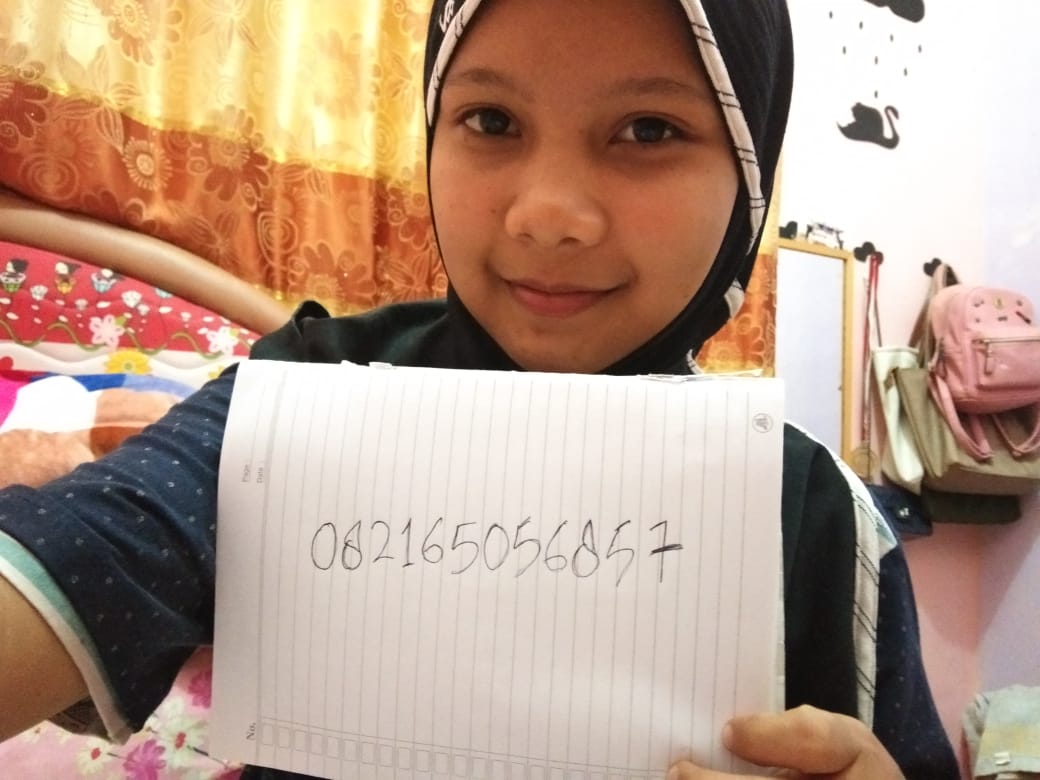 Page :
Date :
082165056857
No.